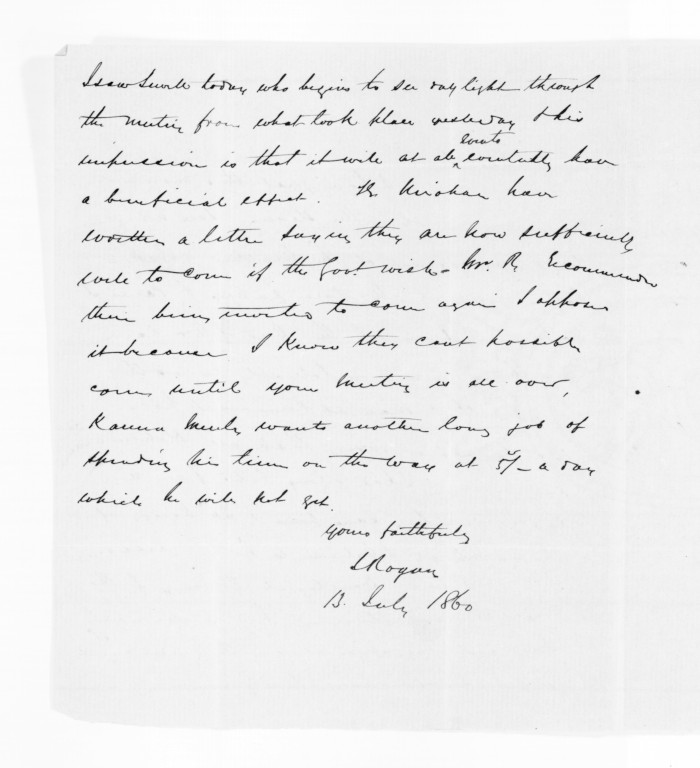 I saw Smith today who begins to see daylight through
the meeting from what took place yesterday & his
impression is that it will at all events
eventually have
a beneficial effect. The have
written a letter saying they are now sufficiently
well to come if the Govt. wish - Mr. R recommends
their being invited to come again I oppose
it because I know they cant possibly
come until your meeting is all over,
wants another long job of
spending his time on the way at 5/- a day
which he will not get.
Yours faithfully
J Rogan
13. July 1860